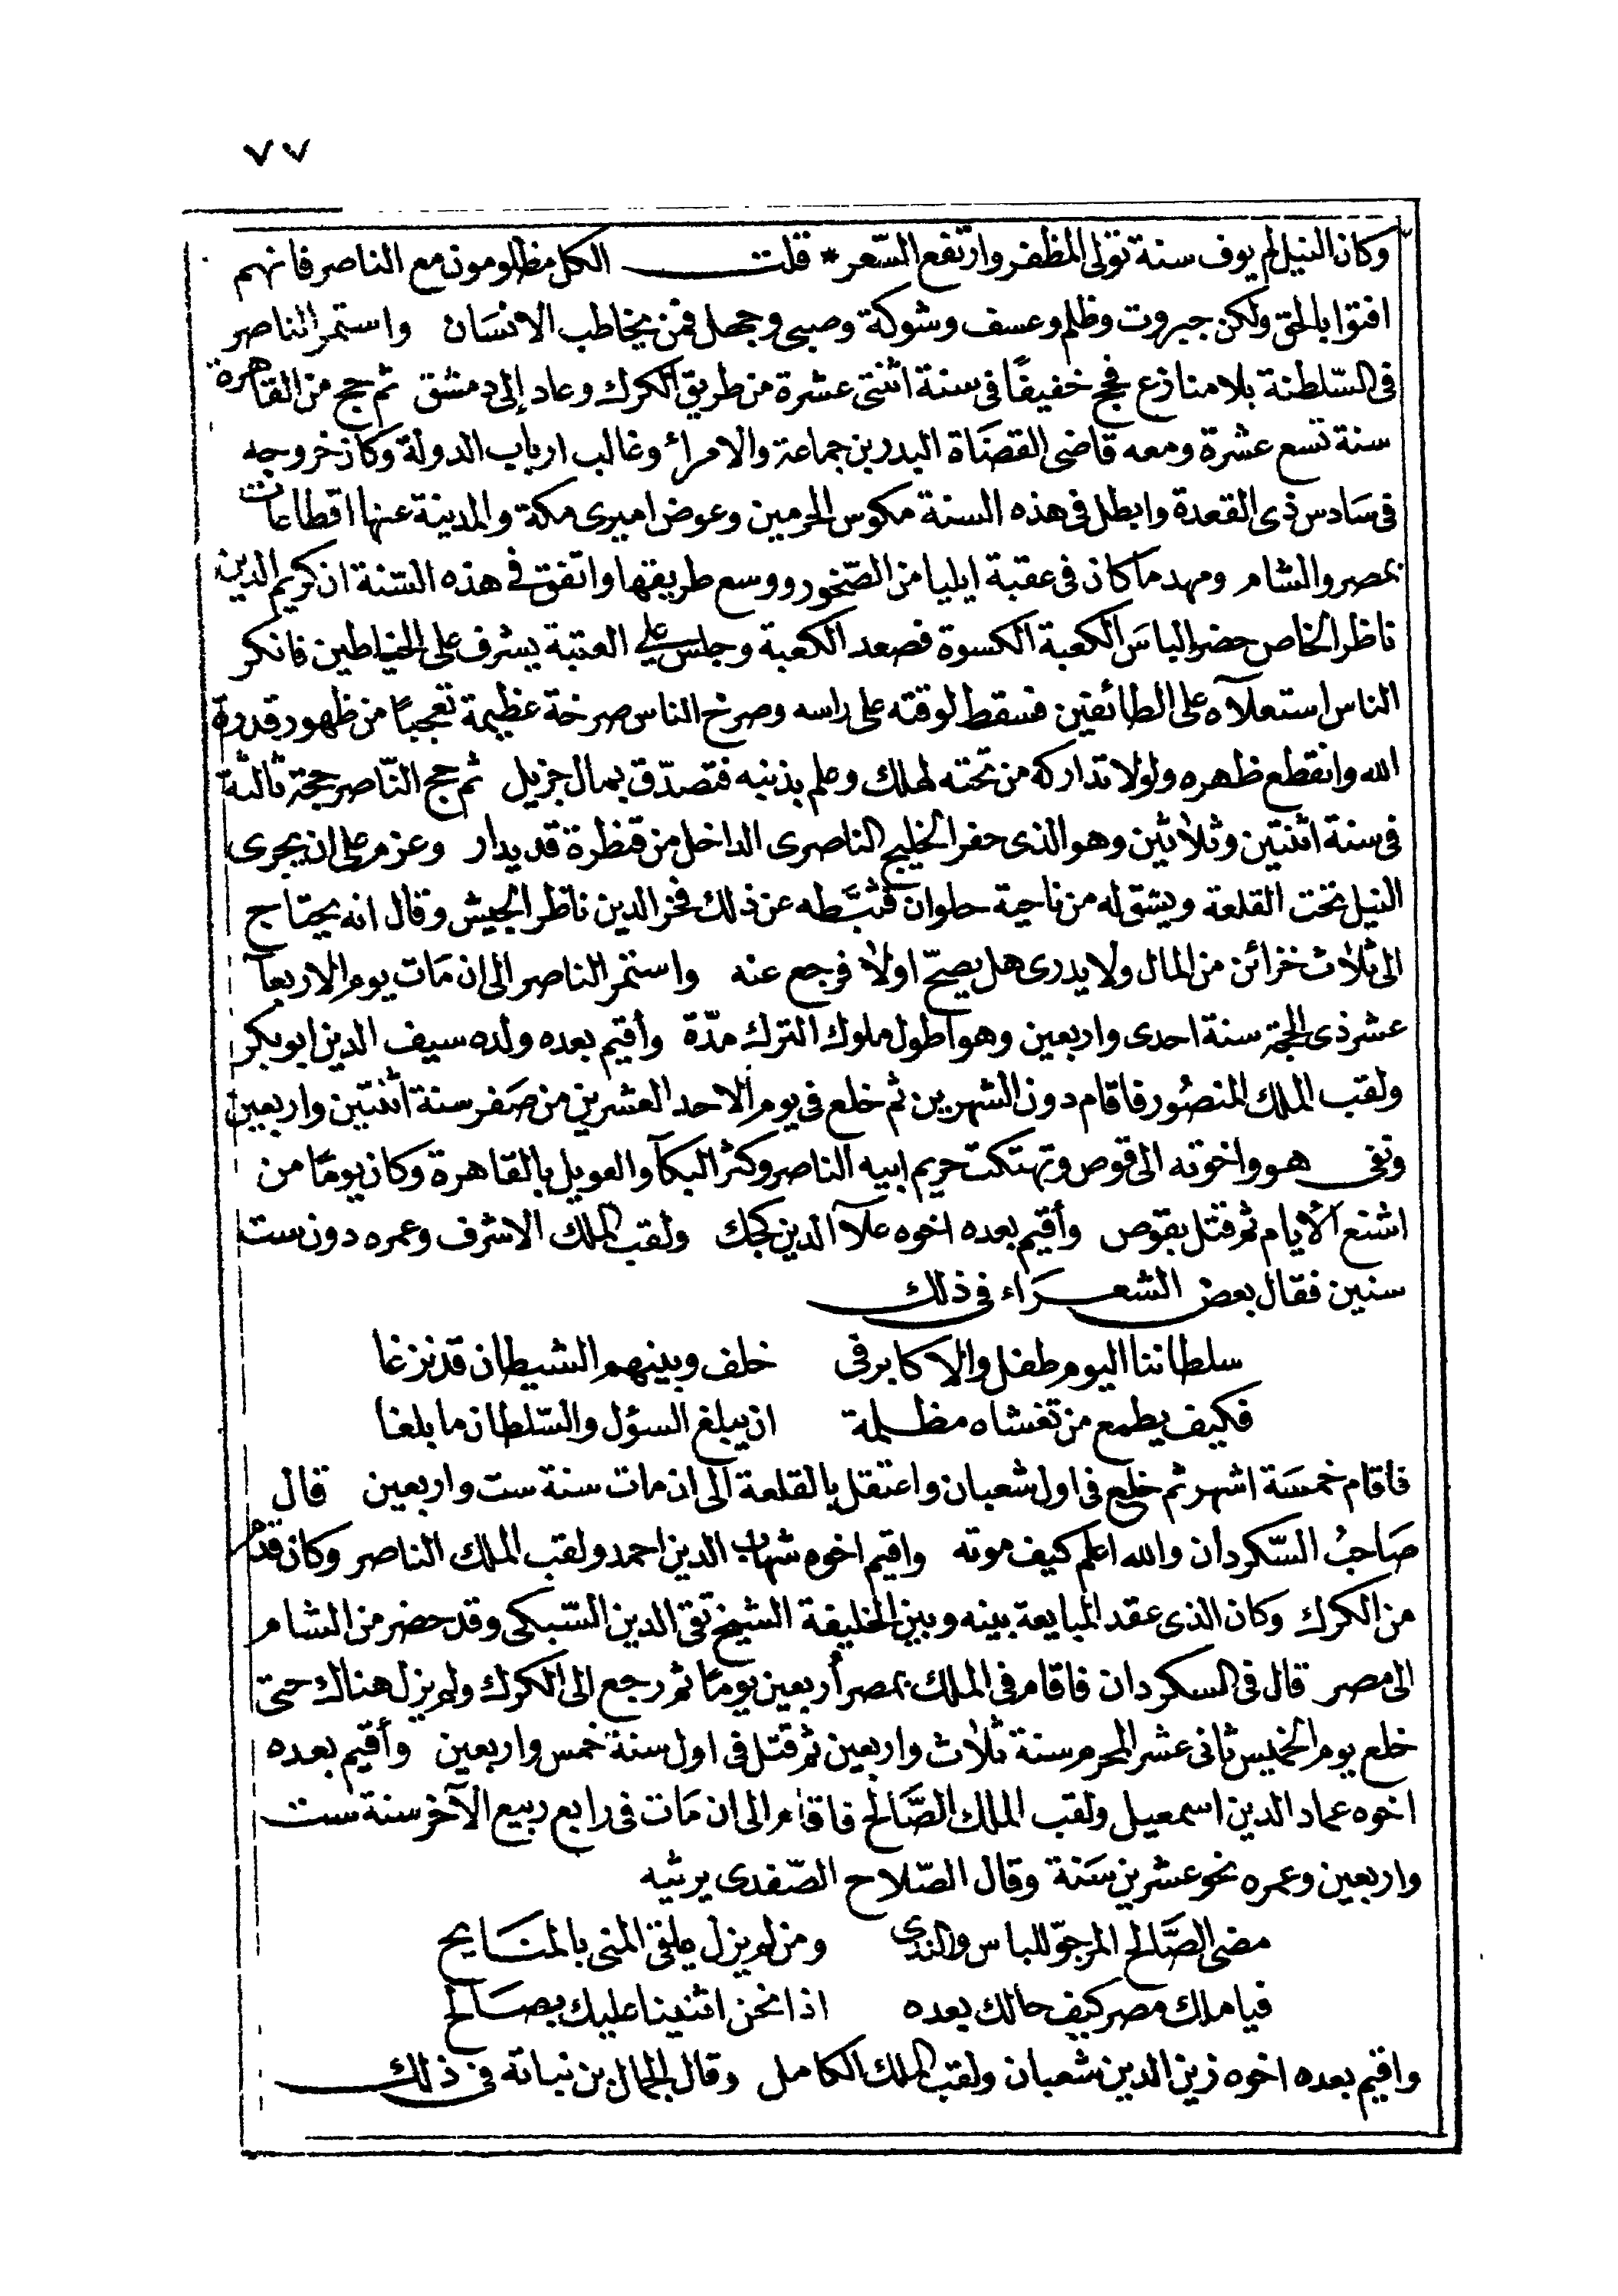 ٧٧
وكان النيل لم يوف سنة تولى المظفر وارتفع السّعر * قلت الكل مظلومون مع الناصر فانهم
افتوا بالحق ولكن جبروت وظلم وعسف وشوكة وصبى وجهل فمن يخاطب الانسان واستمر الناصر
فى السّلطنة بلا منازع فحج خفيفًا فى سنة اثنتى عشرة من طريق الكرك وعاد إلى دمشق ثم حج من القاهرة
سنة تسع عشرة ومعه قاضى القضاة البدر بن جماعة والامراء وغالب ارباب الدولة وكان خروجه
فى سَادس ذى القعدة وابطل فى هذه السنة مكوس الحرمين وعوض اميرى مكة والمدينة عنها اقطاعات
بمصر والشام ومهد ما كان فى عقبة ايليا من الصّخور ووسع طريقها واتفق فى هذه السّنة ان كريم الدين
ناظر الخاص حضر الباسَ الكعبة الكسوة فصعد الكعبة وجلس على العتبة يشرف على الخياطين فانكر
الناس استعلآه على الطائفين فسقط لوقته على راسه وصرخ الناس صرخة عظيمة تعجبًا من ظهور قدرة
الله وانقطع ظهره ولولا تداركه من تحته لهلك وعلم بذنبه فتصدّق بمال جزيل ثم حج النّاصر حجة ثالثة
فى سنة اثنتين وثلاثين وهو الذى حفر الخليج الناصرى الداخل من قنطرة قديدار وعزم على ان يجرى
النيل تحت القلعة ويشق له من ناحية حلوان فثبَّطه عن ذلك فخر الدين ناظر الجيش وقال انه يحتاج
الى ثلاث خزائن من المال ولا يدرى هل يصحّ اولا فرجع عنه واستمر الناصر الى ان مَات يوم الاربعآ
عشر ذى الحجة سنة احدى واربعين وهو أطول ملوك الترك مدّة وأقيم بعده ولده سيف الدين ابو بكر
ولقب الملك المنصُور فاقام دون الشهرين ثم خلع فى يوم الاحد العشرين من صَفر سنة اثنتين واربعين
ونفى هو واخوته الى قوص وتهتكت حريم ابيه الناصر وكثر البكآ والعويل بالقاهرة وكان يومًا من
اشنع الأيام ثم قتل بقوص وأقيم بعده اخوه علآ الدين كجك ولقب الملك الاشرف وعمره دون ست
سنين فقال بعض الشعرَاء فى ذلك
سلطاننا اليوم طفل والاكابر فى خلف وبينهم الشيطان قد نزغا
فكيف يطمع من تغشاه مظلمة ان يبلغ السؤل والسّلطان ما بلغا
فاقام خمسَة اشهر ثم خلع فى اول شعبان واعتقل بالقلعة الى ان مات سنة ست واربعين قال
صَاحبُ السّكردان والله اعلم كيف موته واقيم اخوه شهاب الدين احمد ولقب الملك الناصر وكان قدم
من الكرك وكان الذى عقد المبايعة بينه وبين الخليفة الشيخ تقى الدين السّبكى وقد حضر من الشام
الى مصر قال فى السكردان فاقام فى الملك بمصر أربعين يومًا ثم رجع الى الكرك ولم يزل هناك حتى
خلع يوم الخميس ثانى عشر المحرم سنة ثلاث واربعين ثم قتل فى اول سنة خمس واربعين وأقيم بعده
اخوه عماد الدين اسمعيل ولقب الملك الصَّالح فاقام الى ان مَات فى رابع ربيع الآخر سنة ست
واربعين وعمره نحو عشرين سَنة وقال الصّلاح الصّفدى يرثيه
مضى الصَّالح المرجوّ للباس والندى ومن لم يزل يلقى المنى بالمنَايح
فيا ملك مصر كيف حالك بعده اذا نحن اثنينا عليك بصَالح
واقيم بعده اخوه زين الدين شعبان ولقب الملك الكامل وقال الجمال بن نباتة فى ذلك